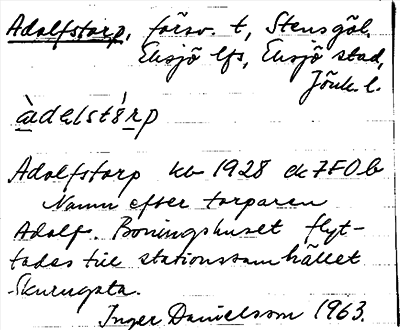 Adolfstorp, försv. t, Stensgöl,
Eksjö lfs, Eksjö stad,
Jönk. l.
àdɐlstɔ́rp
Adolfstorp kb 1928 ek 7F0b
Namn efter torparen
Adolf. Boningshuset flyt-
tades till stationssamhället
Skurugata.
Inger Danielsson 1963.